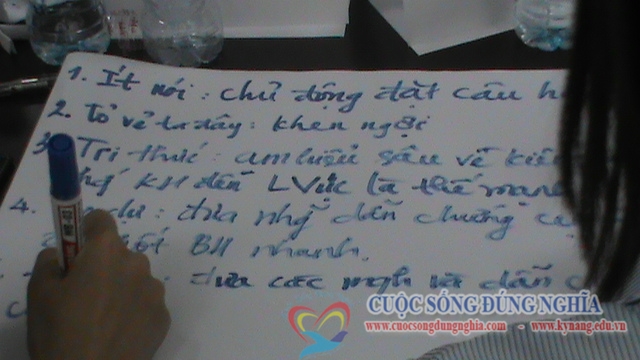 1. Ít nói : chủ động đặt câu h
2. Tỏ vẻ ta đây : khen ngợi
3. Tri thức : am hiểu sâu về kiến
KH đến LVực là thế mạnh
4. : đưa dẫn chứng
BH nhanh.
: đưa các và dẫn
CUỘC SỐNG ĐÚNG NGHĨA
www.cuocsongdungnghia.com - www.kynang.edu.vn